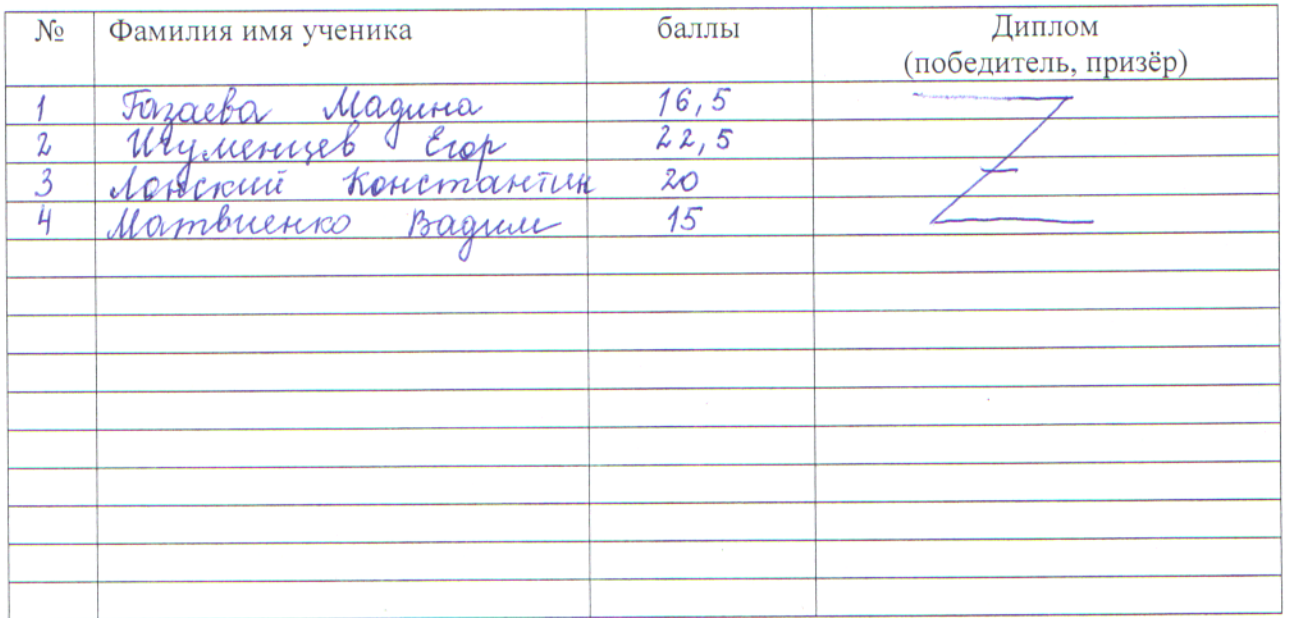 № Фамилия имя ученика баллы Диплом
(победитель, призёр)
1 Газаева Мадина 16,5
2 Игуменцев Егор 22,5
3 Лонский Константин 20
4 Матвиенко Вадим 15